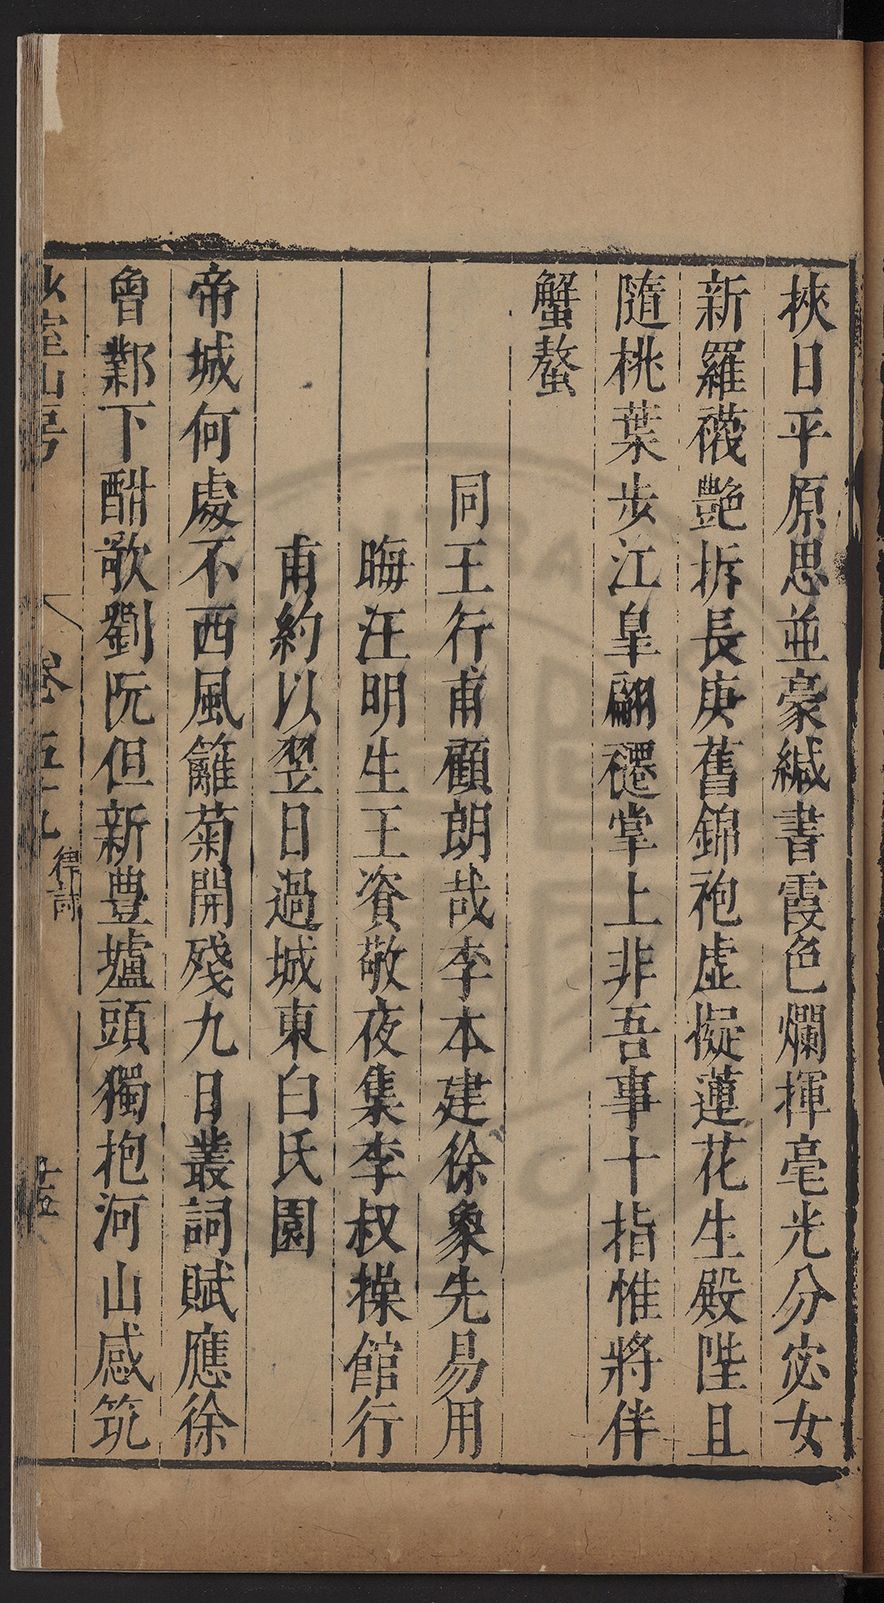 挾日平原思並豪緘書霞色爛揮毫光分宓女
新羅襪艷拆長庚舊錦袍虛擬蓮花生殿陛且
隨桃葉步江皐翩躚掌上非吾事十指惟將伴
蟹螯
同王行甫顧朗哉李本建徐象先易用
晦汪明生王資敬夜集李叔操館行
甫約以翌日過城東白氏園
帝城何處不西風籬菊開殘九日叢詞賦應徐
曾鄴下酣歌劉阮但新豊壚頭獨抱河山感筑
少室山房
卷五十九
律詩
十五